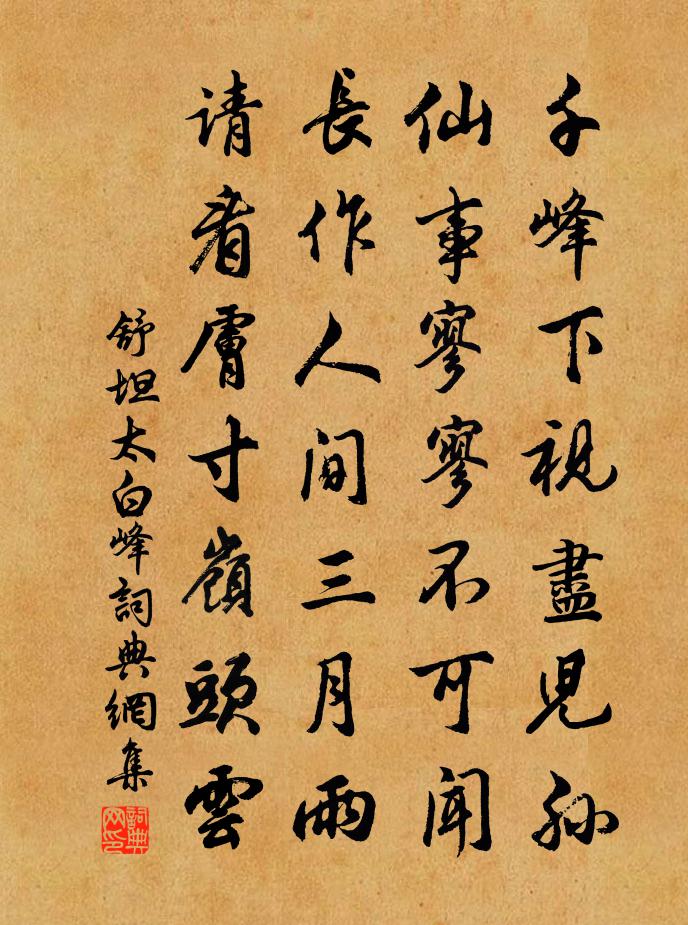 千峰下視盡児孫
仙事寥寥不可聞
長作人间三月雨
请看膚寸嶺頭雲
舒坦太白峰詞典網集
詞典网印